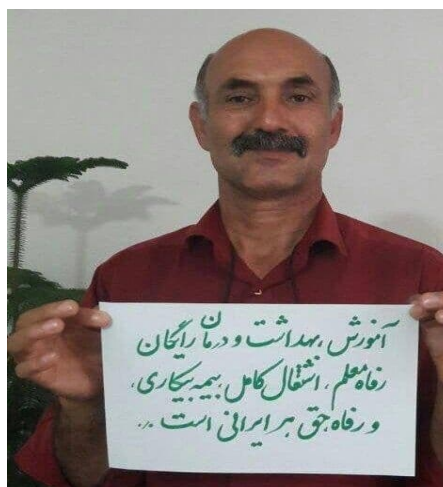 آموزش، بهداشت و درمان رایگان
رفاه معلم، اشتغال کامل، بیمه بیکاری،
و رفاه، حق هر ایرانی است ...